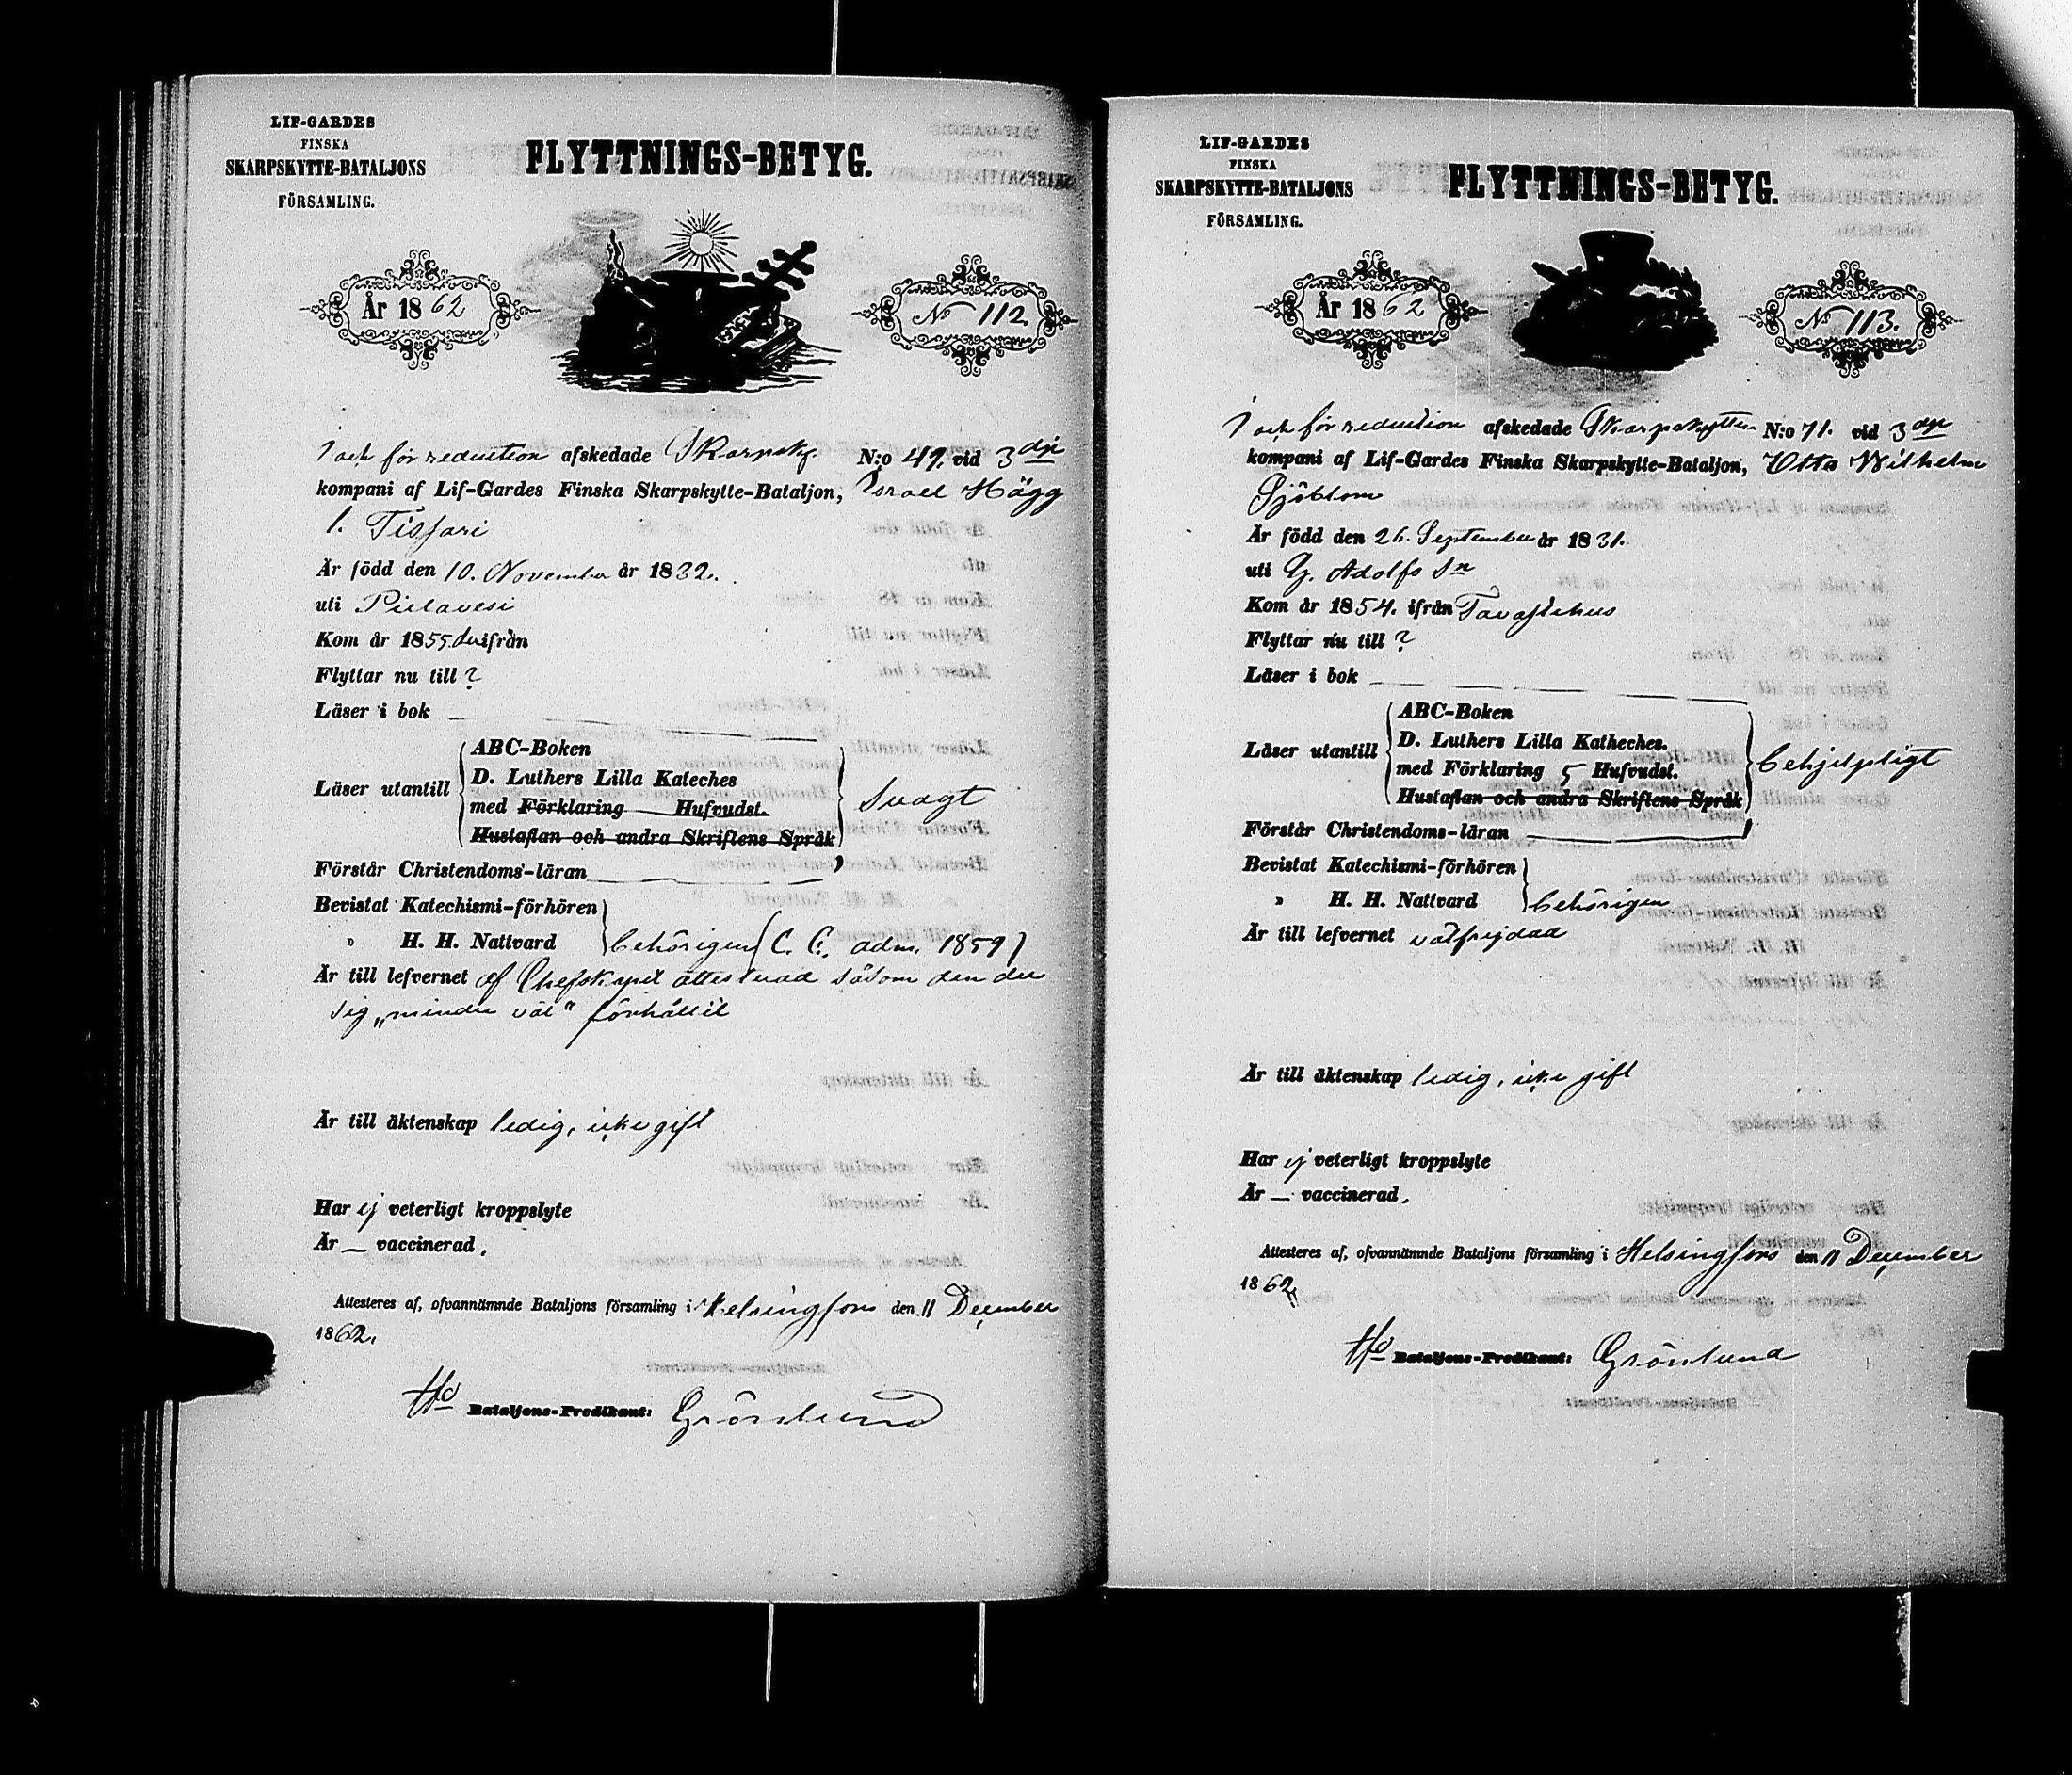 LIF-GARDES
FINSKA
SKARPSKYTTE-BATALJONS
FÖRSAMLING.
FLYTTNINGS-BETYG.
År 1862
No 112.
I och för reduction afskedade Skarpsk. N:o 49. vid 3dje
kompani af Lif-Gardes Finska Skarpskytte-Bataljon, Israel Hägg
l. Tissari
Är född den 10. November år 1832.
uti Pielavesi
Kom år 1855. ifrån
Flyttar nu till ?
Läser i bok —
Läser utantill
ABC-Boken
D. Luthers Lilla Kateches
med Förklaring Hufvudst.
Hustaflan och andra Skriftens Språk
svagt
Förstår Christendoms-läran
Bevistat Katechismi-förhören
" H. H. Nattvard
behörigen (C. C. adm. 1859)
Är till lefvernet af Chefskapet attesterad såsom den der
sig „mindre väl" förhållit
Är till äktenskap ledig, icke gift
Har ej veterligt kroppslyte
Är — vaccinerad.
Attesteres af, ofvannämnde Bataljons församling i Helsingfors den 11 December
1862.
Bataljons-Predikant: Grönlund
LIF-GARDES
FINSKA
SKARPSKYTTE-BATALJONS
FÖRSAMLING.
FLYTTNINGS-BETYG.
År 1862
No 113.
I och för reduction afskedade Skarpskytten N:o 71. vid 3dje
kompani af Lif-Gardes Finska Skarpskytte-Bataljon, Otto Wilhelm
Sjöblom
Är född den 26. September år 1831.
uti G. Adolfs Sn
Kom år 1854. ifrån Tavastehus
Flyttar nu till ?
Läser i bok —
Läser utantill
ABC-Boken
D. Luthers Lilla Katheches.
med Förklaring 5 Hufvudst.
Hustaflan och andra Skriftens Språk
behjelpligt
Förstår Christendoms-läran
Bevistat Katechismi-förhören
" H. H. Nattvard
behörigen
Är till lefvernet välfrejdad
Är till äktenskap ledig, icke gift
Har ej veterligt kroppslyte
Är — vaccinerad.
Attesteres af, ofvannämnde Bataljons församling i Helsingfors den 11 December
1862.
Bataljons-Predikant: Grönlund